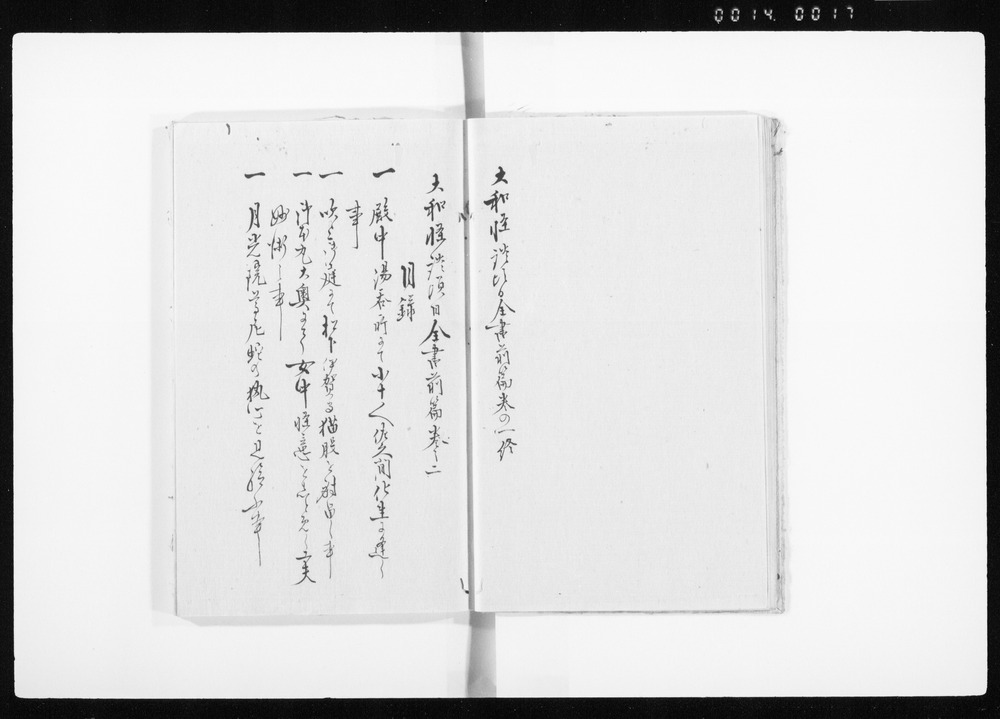 0014 0017
大和怪談頃日全書前篇巻の一終
大和怪談頃日全書前篇巻之二
目録
一 殿中湯呑所にて小十人佐久間化生に逢し
事
一 吹上御庭にて松下伊賀守猫股を射留し事
一 御本丸大奥にて女中怪
妙術之事
一 月光院尊尼蛇の執心を見給ふ事